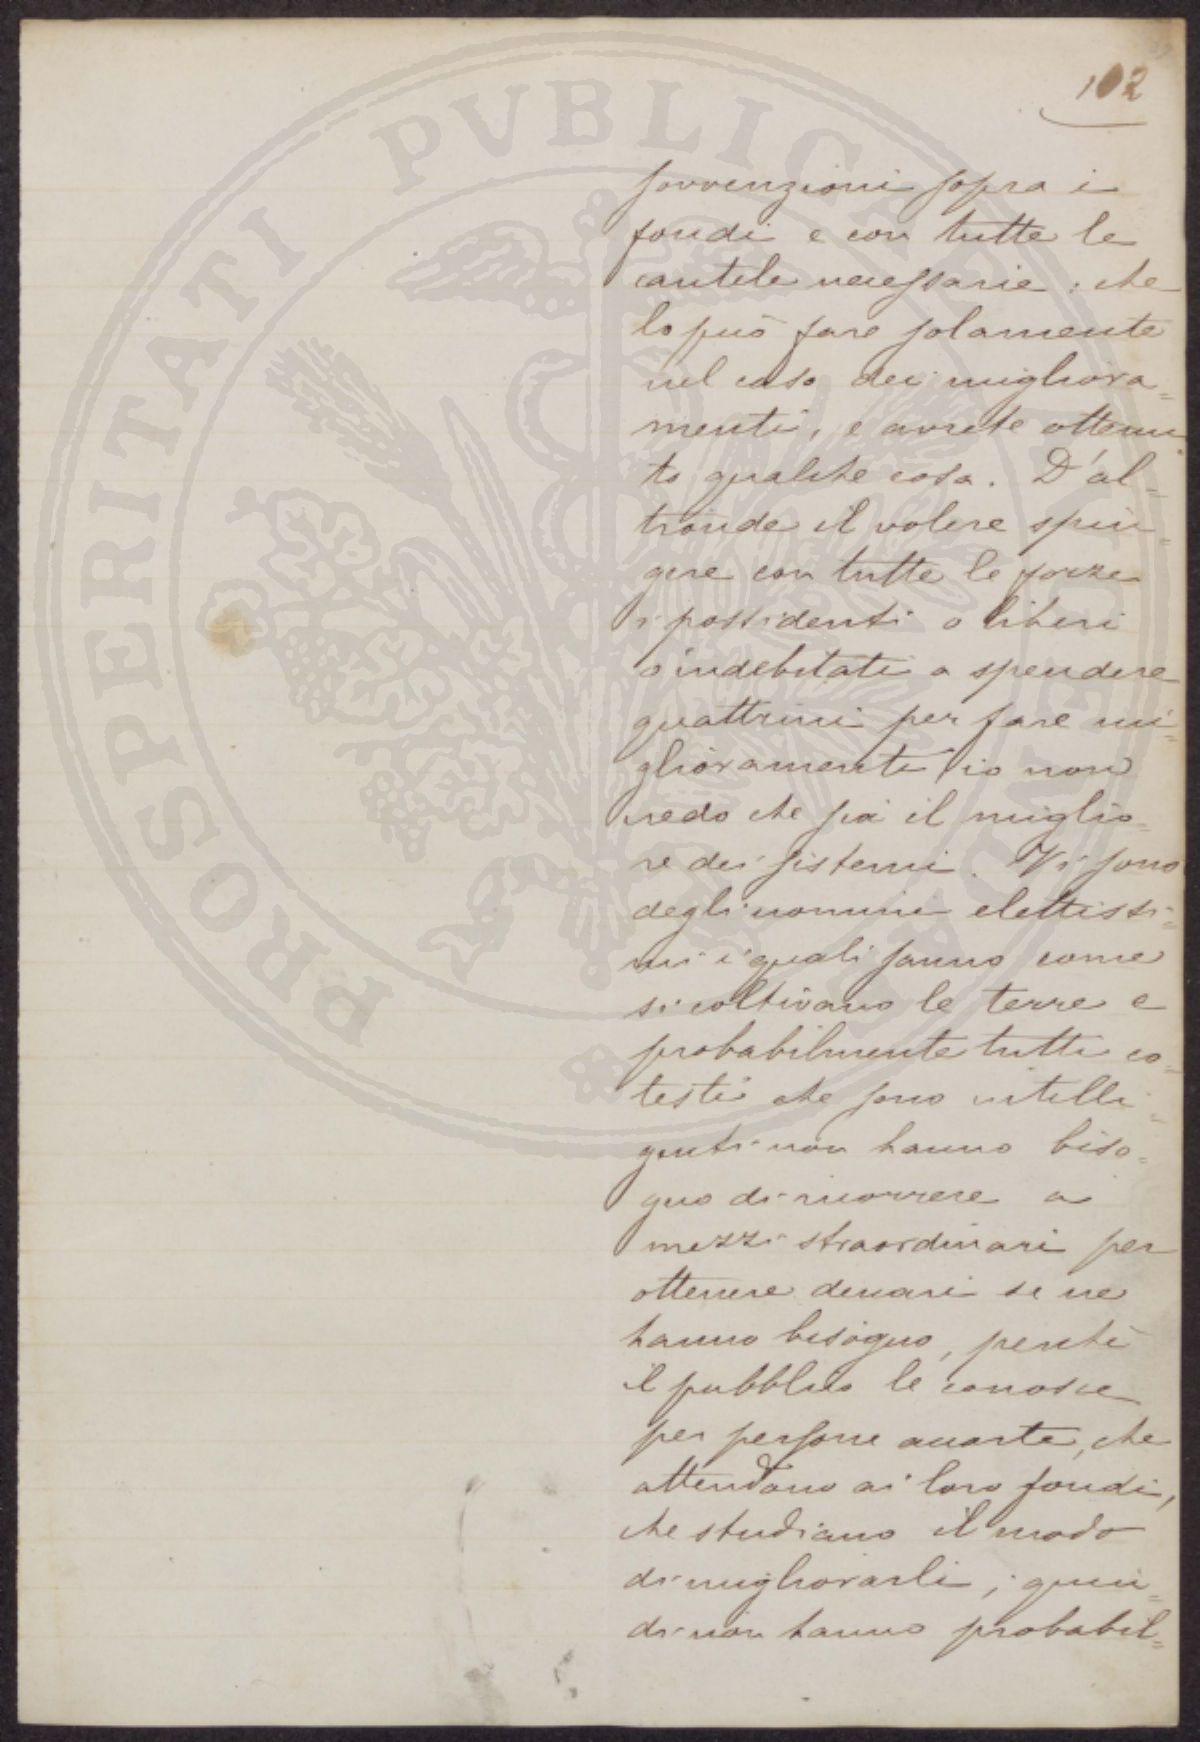 102
sovvenzioni sopra i
fondi e con tutte le
cautele necessarie: che
lo può fare solamente
nel caso dei migliora=
menti, e avrete ottenu=
to qualche cosa. D'al=
tronde il volere spin=
gere con tutte le forze
i possidenti o liberi
o indebitati a spendere
quattrini per fare mi=
glioramenti io non
credo che sia il miglio=
re dei sistemi. Vi sono
degli uomini elettissi=
mi i quali sanno come
si coltivano le terre e
probabilmente tutti co=
testi che sono intelli=
genti non hanno biso=
gno di ricorrere a
mezzi straordinari per
ottenere denari se ne
hanno bisogno, perchè
il pubblico le conosce
per persone accorte, che
attendono ai loro fondi,
che studiano il modo
di migliorarli; quin=
di non hanno probabil=
PROSPERITATI PVBLICAE AVGENDAE